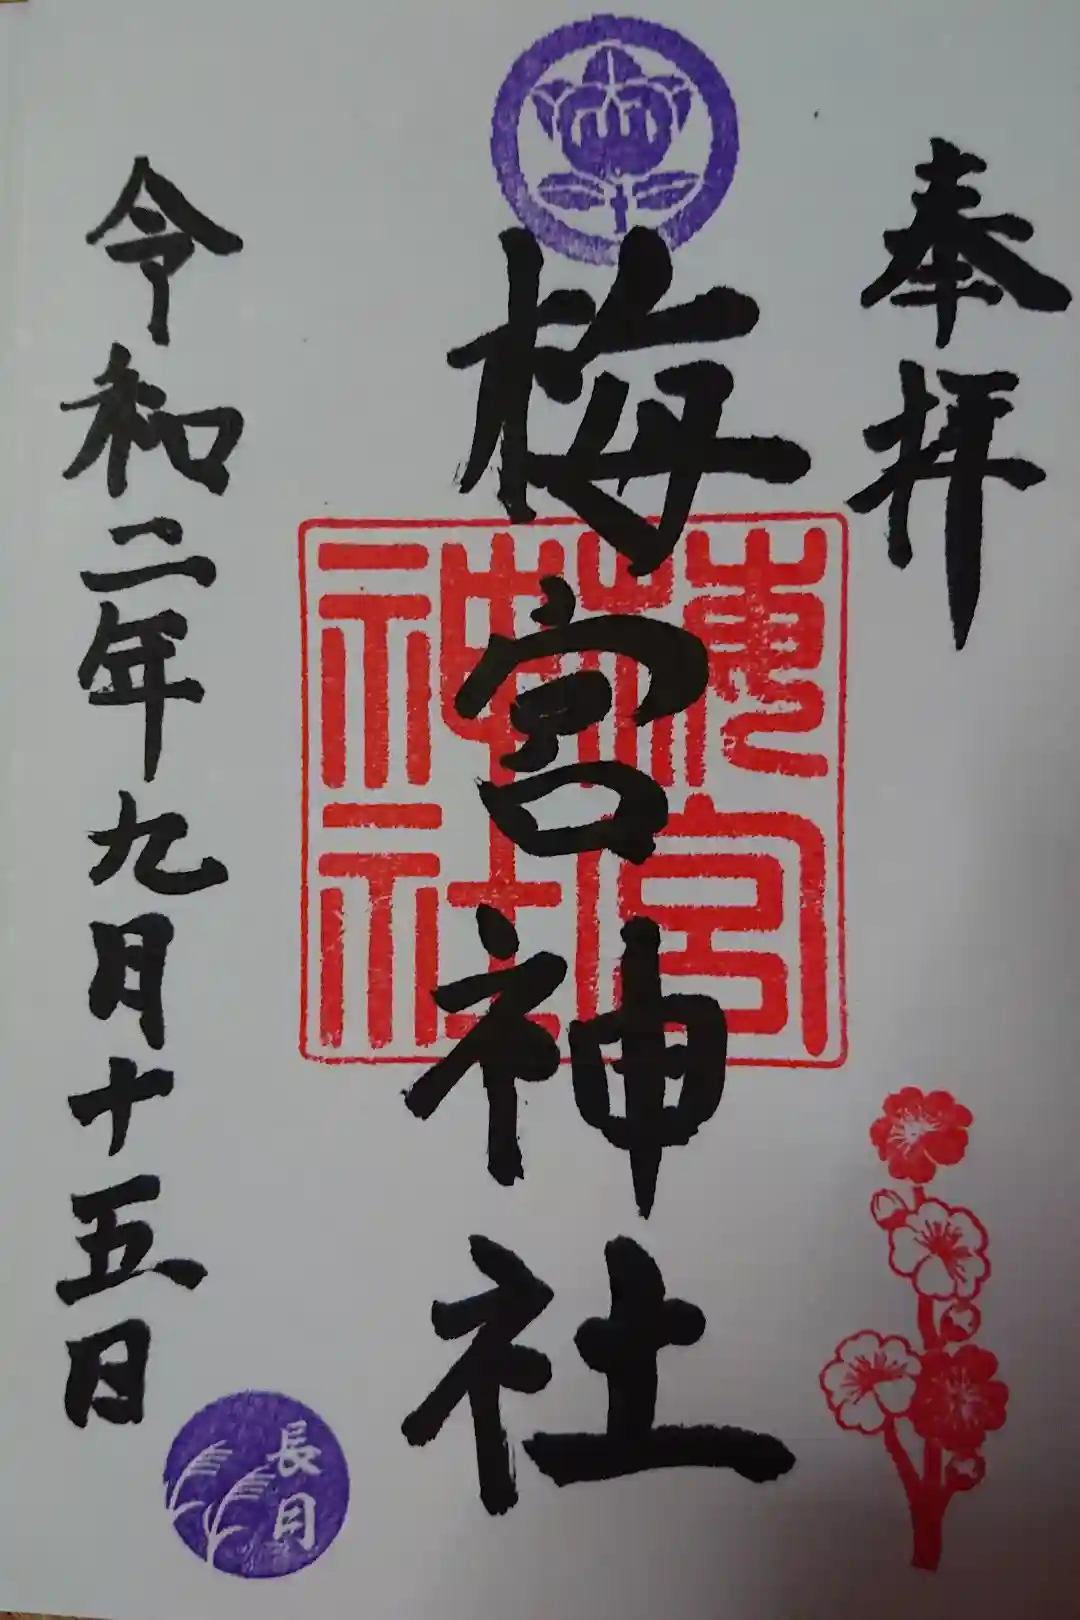 奉拝
梅宮神社
梅宮
神社
令和二年九月十五日
長月